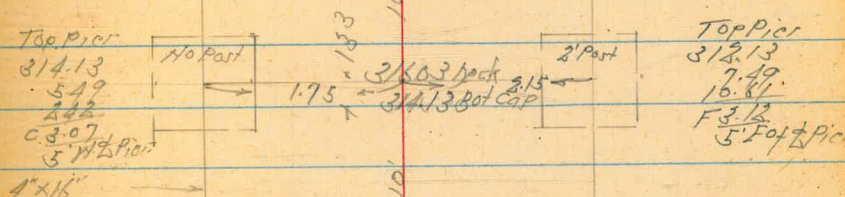 Top Pier
314.13
5.49
2.42
C 3.07
5' W of ℄ Pier
4"x16"
No Post
1.75
153
10'
316.03 Deck
314.13 Bot Cap
10'
2.15
2' Post
Top Pier
312.13
7.49
10.61
F 3.12
5' E of ℄ Pier